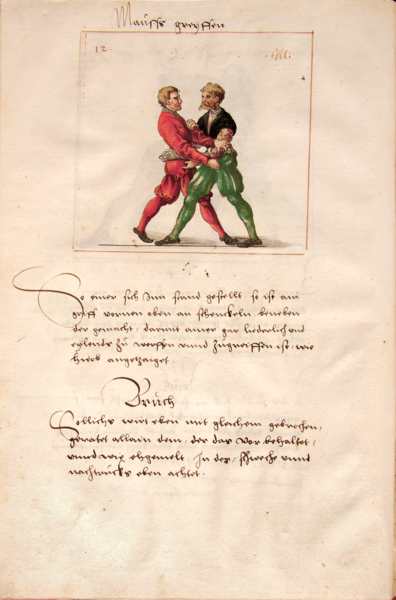 Mäusse greyffen
12
So einer sich inn stand gestellt so ist ain
griff vornen oben an schenckeln beneben
der gemacht, darmit ainer gar liederlich und
eylends zu werffen unnd zugreiffen ist, wie
hieob angezaiget.
Bruch
Sollichs wirt eben mit gleichem gebrochen,
geratet allain dem, der das vor behaltet,
unnd wie ehgemelt. In der, schweche unnd
nachtrucks eben achtet.